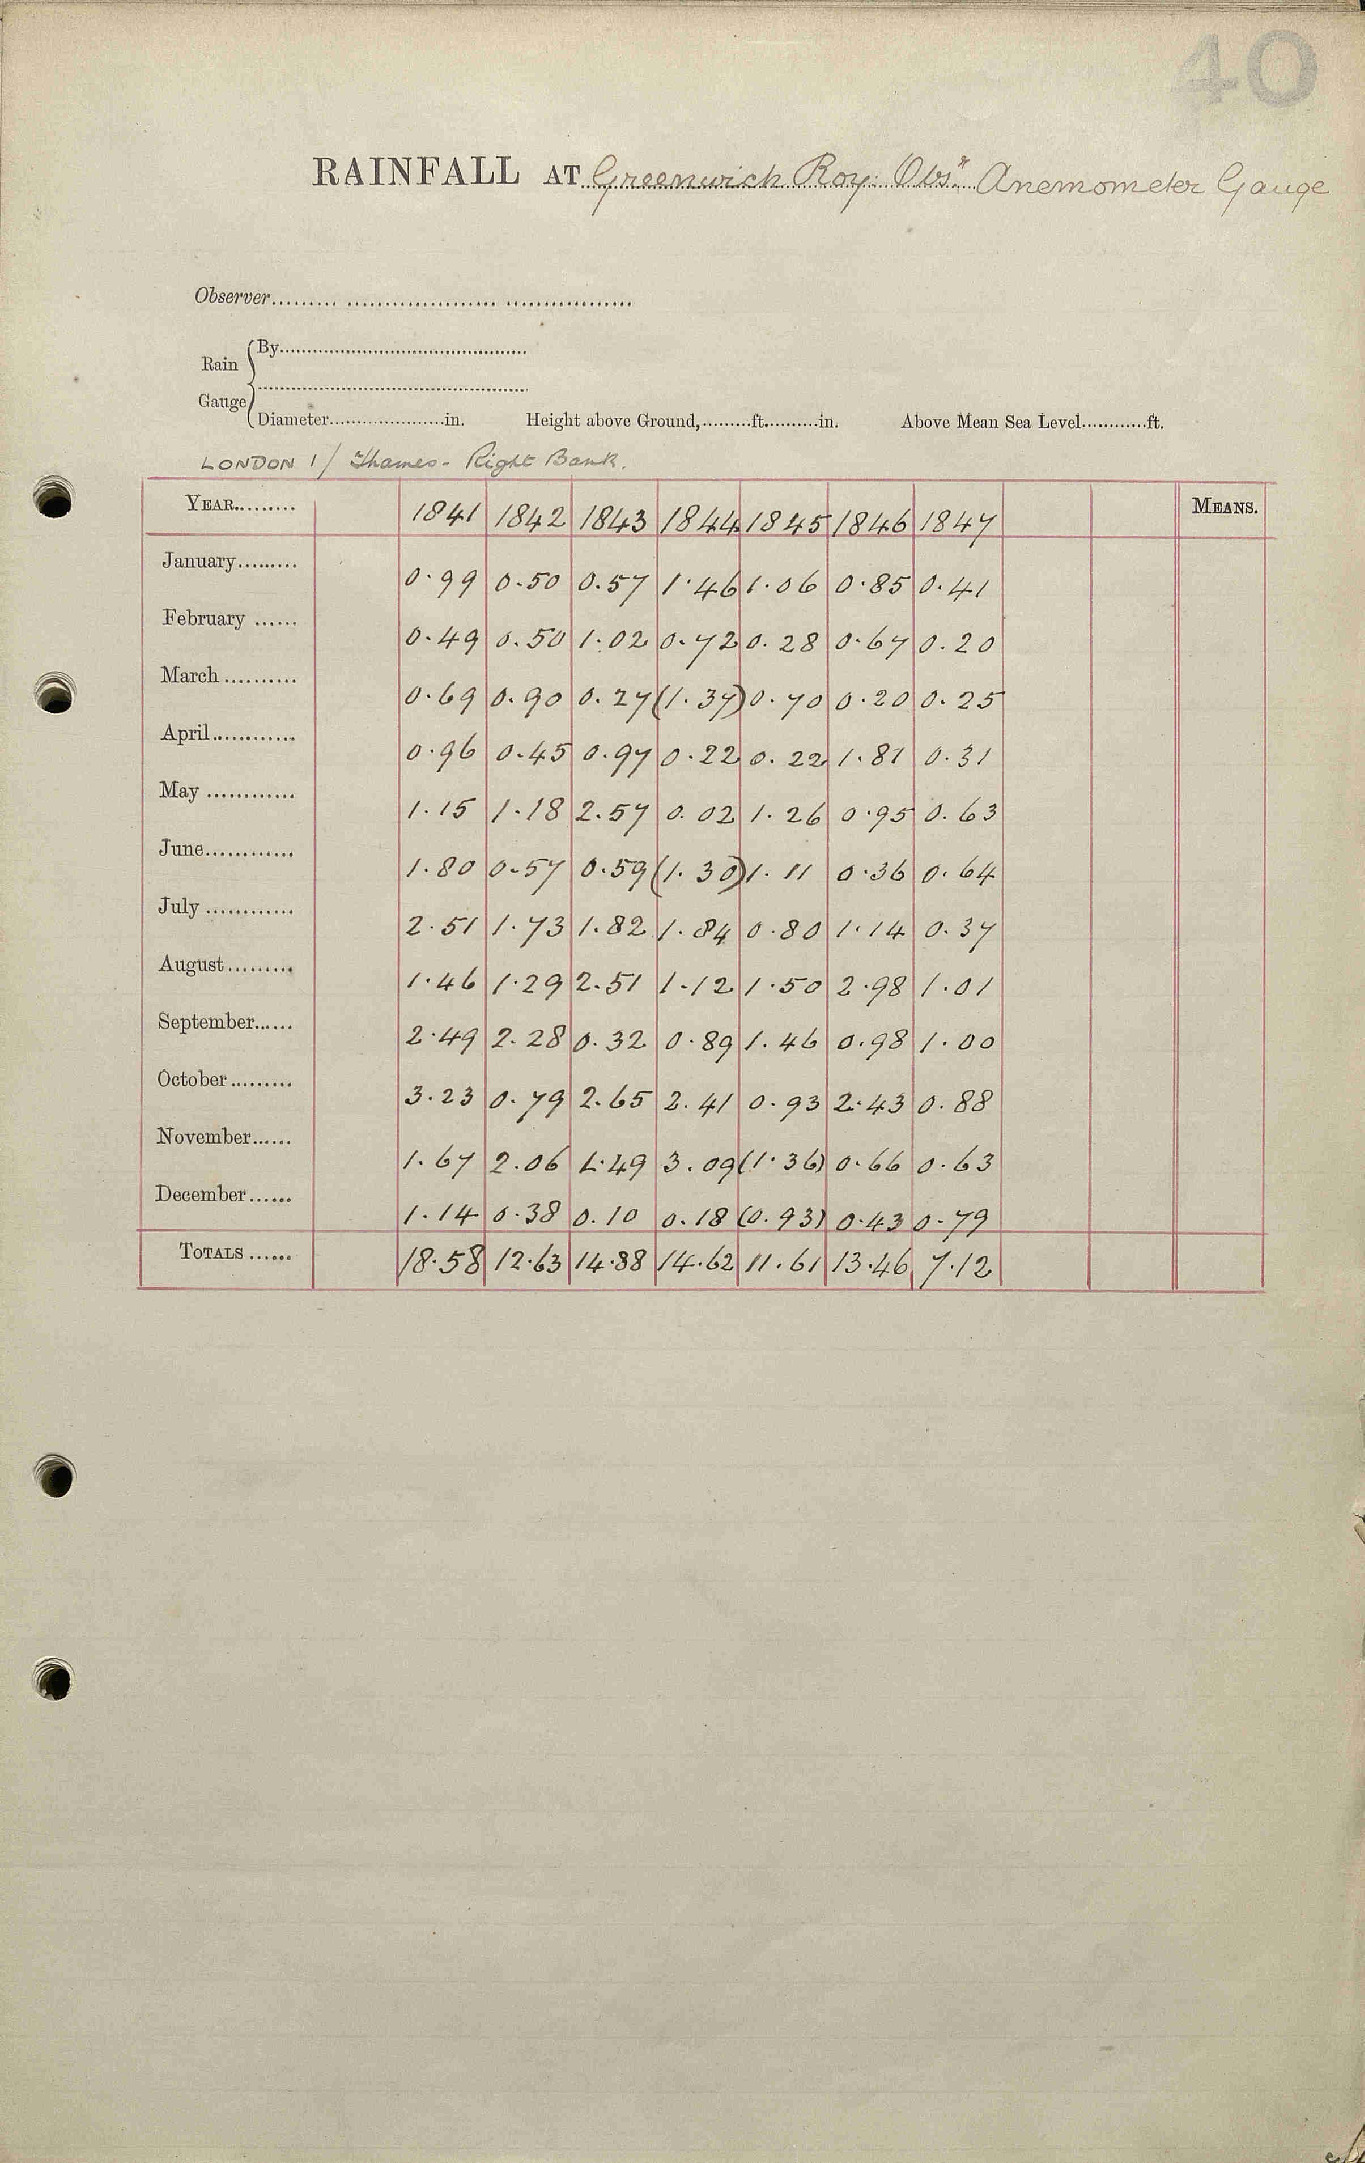 40
RAINFALL AT Greenwich Roy. Obsy. Anemometer Gauge
Observer
Rain Gauge
By
Diameter in. Height above Ground, ft. in. Above Mean Sea Level ft.
LONDON 1/ Thames - Right Bank.
YEAR 1841 1842 1843 1844 1845 1846 1847 MEANS.
January 0.99 0.50 0.57 1.46 1.06 0.85 0.41
February 0.49 0.50 1.02 0.72 0.28 0.67 0.20
March 0.69 0.90 0.27 (1.37) 0.70 0.20 0.25
April 0.96 0.45 0.97 0.22 0.22 1.81 0.31
May 1.15 1.18 2.57 0.02 1.26 0.95 0.63
June 1.80 0.57 0.59 (1.30) 1.11 0.36 0.64
July 2.51 1.73 1.82 1.84 0.80 1.14 0.37
August 1.46 1.29 2.51 1.12 1.50 2.98 1.01
September 2.49 2.28 0.32 0.89 1.46 0.98 1.00
October 3.23 0.79 2.65 2.41 0.93 2.43 0.88
November 1.67 2.06 1.49 3.09 (1.36) 0.66 0.63
December 1.14 0.38 0.10 0.18 (0.93) 0.43 0.79
TOTALS 18.58 12.63 14.88 14.62 11.61 13.46 7.12